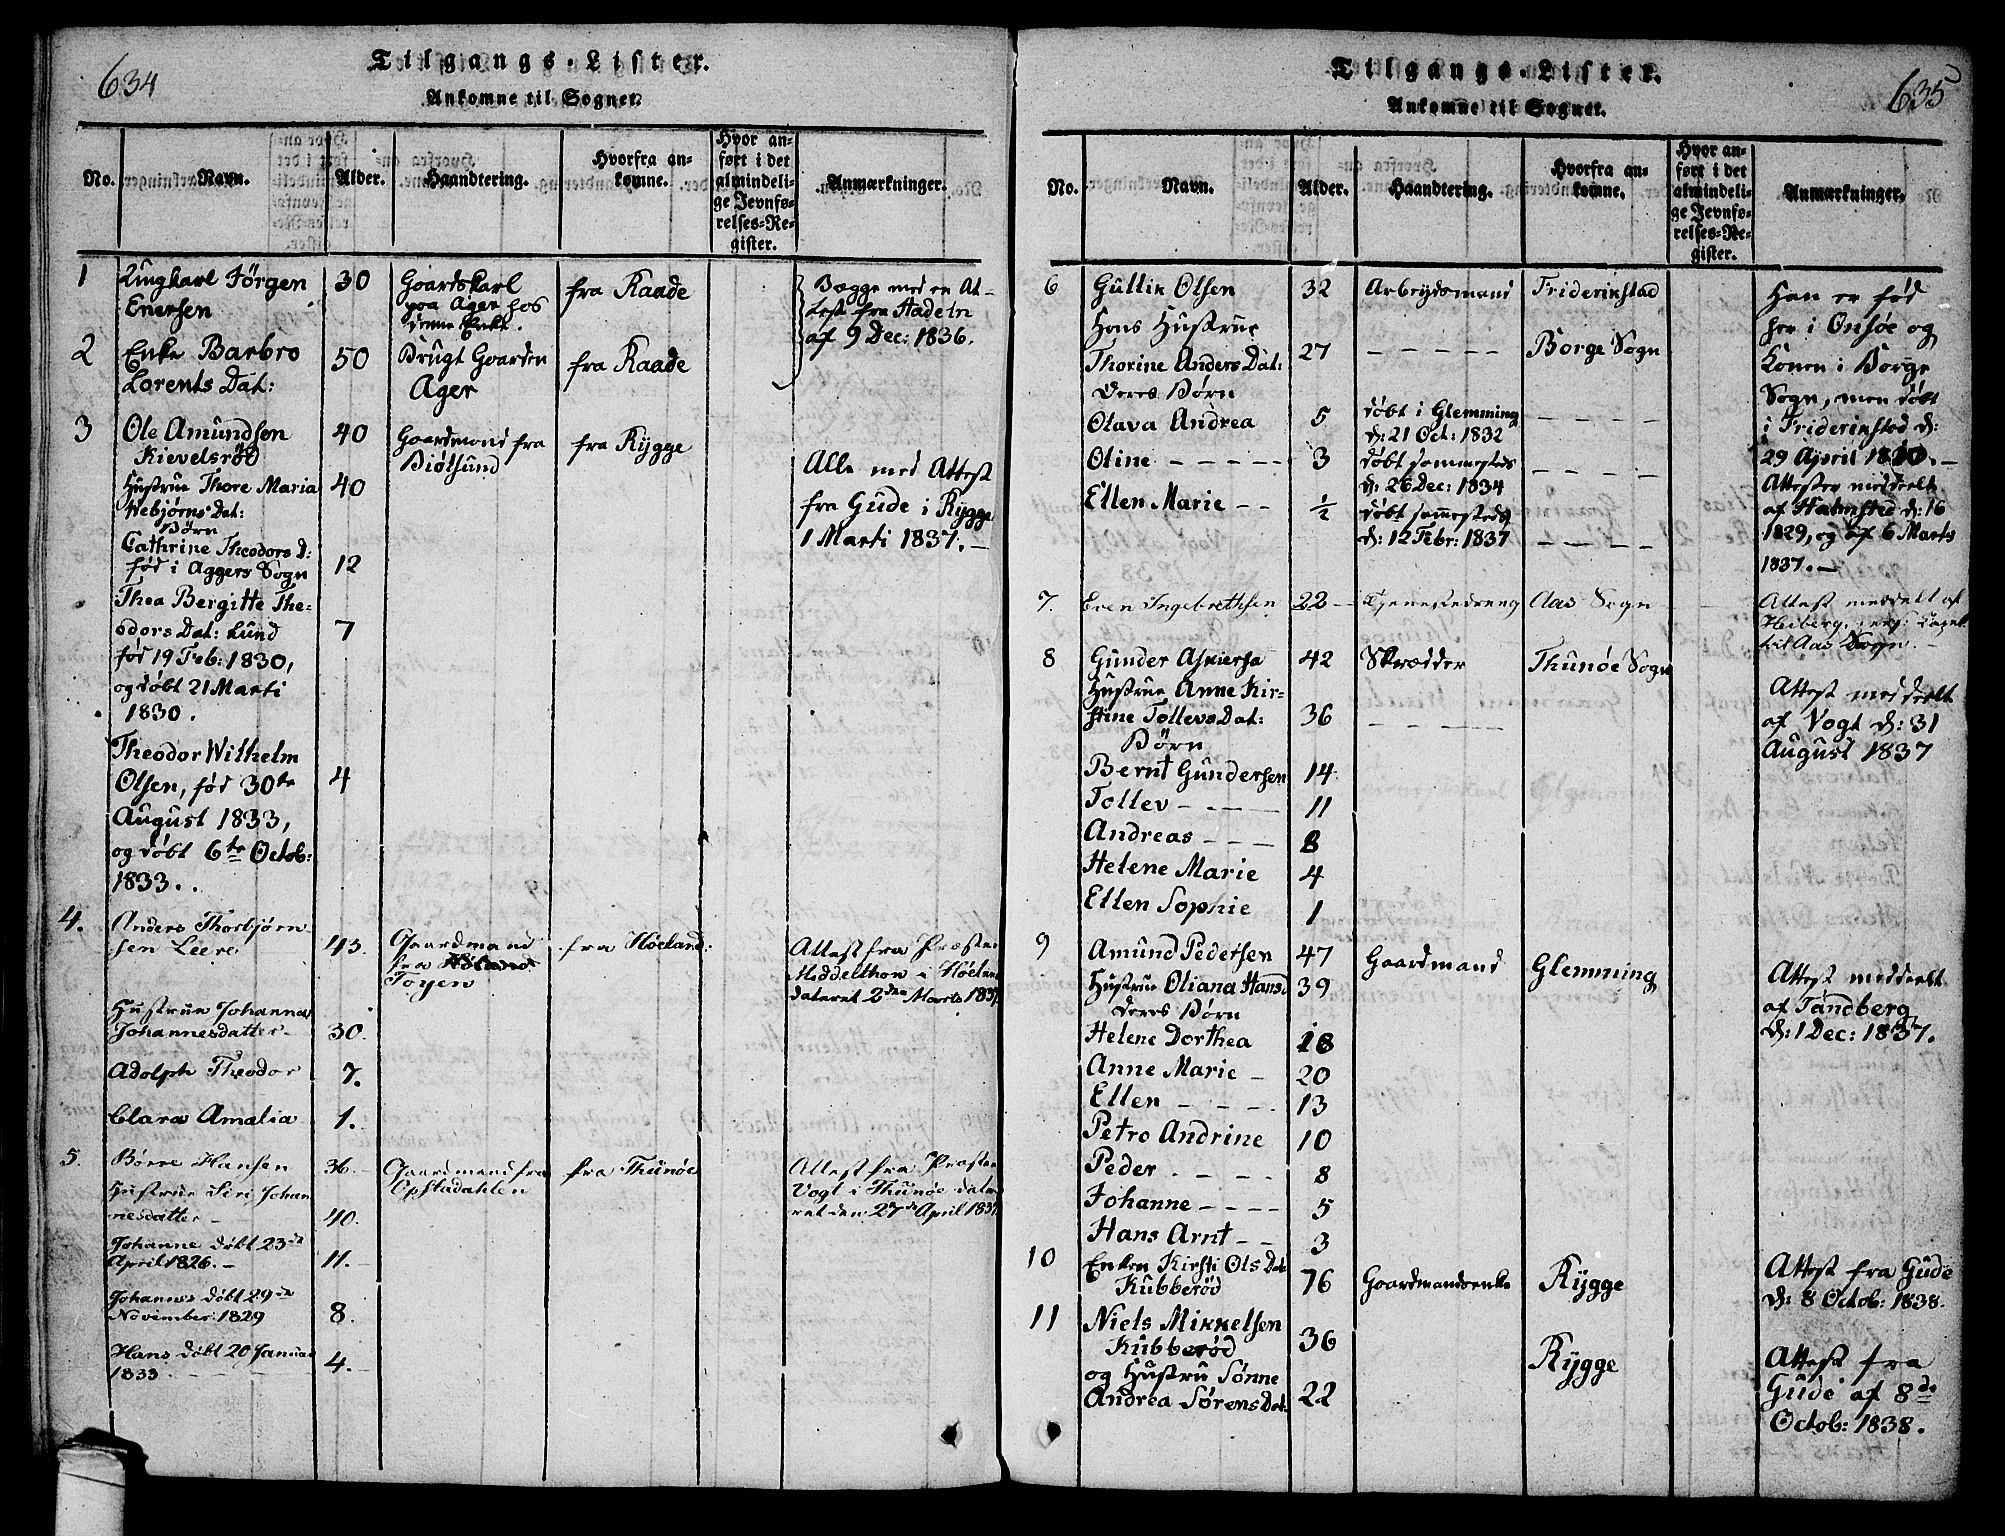 634
Tilgangs-Lister.
Ankomne til Sognet.
No.
Navn.
Alder.
Haandtering.
Hvorfra an-
komne.
Hvor an-
ført i det
almindeli-
ge Jevnfø-
relses-Re-
gister.
Anmærkninger.
1
Ungkarl Jörgen
Enersen
30
Goardskarl
paa Ager hos
denne Enke.
fra Raade
Begge med en At-
test fra
af 9 Dec: 1836.
2
Enke Barbro
Lorents Dat:
50
Brugt Goarden
Ager
fra Raade
3
Ole Amundsen
Kievelsrød
40
Goardmand fra
Biölsund
fra Rygge
Alle med Attest
fra Gude i Rygge
1 Marti 1837.-
Hustrue Thore Maria
Webjørns Dat:
40
Børn
Cathrine Theodors D:
fød i Aggers Sogn
12
Thea Bergitte The-
odors Dat: Lund
fød 19 Feb: 1830,
og døbt 21 Marti
1830.
7
Theodor Wilhelm
Olsen, fød 30te
August 1833,
og døbt 6te Octob:
1833..
4
4.
Anders Thorbjørn
sen Leere
43.
Gaardmand
fra
Toyen
fra Höeland:
Attest fra Præsten
Middelthon i Höeland
dateret 2den Marts 1837
Hustrue Johanna
Johannesdatter-
30.
Adolph Theodor
7.
Clara Amalia
1.
5.
Børre Hansen
36.
Gaardmand fra
Opstadahlen
fra Thunöe
Attest fra Præsten
Vogt i Thunöe date
ret den 27de April 1837
Hustrue Siri Johan
nesdatter
40.
Johanne døbt 23de
April 1826.-
11.
Johannes døbt 29de
November 1829
8.
Hans døbt 20 Januar
1833.
4.
635
Tilgangs-Lister.
Ankomne til Sognet.
No.
Navn.
Alder.
Haandtering.
Hvorfra an-
komne.
Hvor an-
ført i det
almindeli-
ge Jevnfø-
relses-Re-
gister.
Anmærkninger.
6
Gullik Olsen
32
Arbeydsmand
Friderikstad
Han er fød
her i Onsöe og
Konen i Borge
Sogn, men døbt
i Friderikstad d:
29 April 1810.-
Attester meddeelt
af Halmsted d: 16
1829, og af 6 Marts
1837.-
Hans Hustrue
Thorine Anders Dat:
27
- - - - -
Borge Sogn
Deres Børn
Olava Andrea
5
døbt i Glemming
d: 21 Oct: 1832
- - - -
Oline - - - - -
3
døbt sammesteds
d: 26 Dec: 1834
- - - -
Ellen Marie - -
1/2
døbt sammesteds
d: 12 Febr: 1837
- - - -
7.
Even Ingebrethsen
22
Tjenestedreng
Aas Sogn
Attest meddelt af
Heiberg,
til Aas Sogn.
8
Gunder Askiersa
42
Skrædder
Thunöe Sogn
Attest meddeelt
af Vogt d: 31
August 1837
Hustrue Anne Kir-
stine Tollevs Dat:
36
- - - - -
Børn
Bernt Gundersen
14
Tollev - - - -
11
Andreas - - - -
8
Helene Marie
4
Ellen Sophie
1
9
Amund Pedersen
47
Gaardmand
Glemming
Attest meddeelt
af Tandberg
d: 1 Dec: 1837.
Hustrue Oliana Hansd
39
Deres Børn
Helene Dorthea
18
Anne Marie -
20
Ellen - - - -
13
Petro Andrine
10
Peder - - - -
8
Johanne - - - -
5
Hans Arnt - -
3
10
Enken Kirsti Ols Dat
Kubberød
76
Goardmandsenke
Rygge
Attest fra Gude
d: 8 Octob: 1838.
11
Niels Mikkelsen
Kubberød
36
Rygge
Attest fra
Gude af 8de
Octob: 1838.
og Hustru Sønne
Andrea Sørens Dat
22